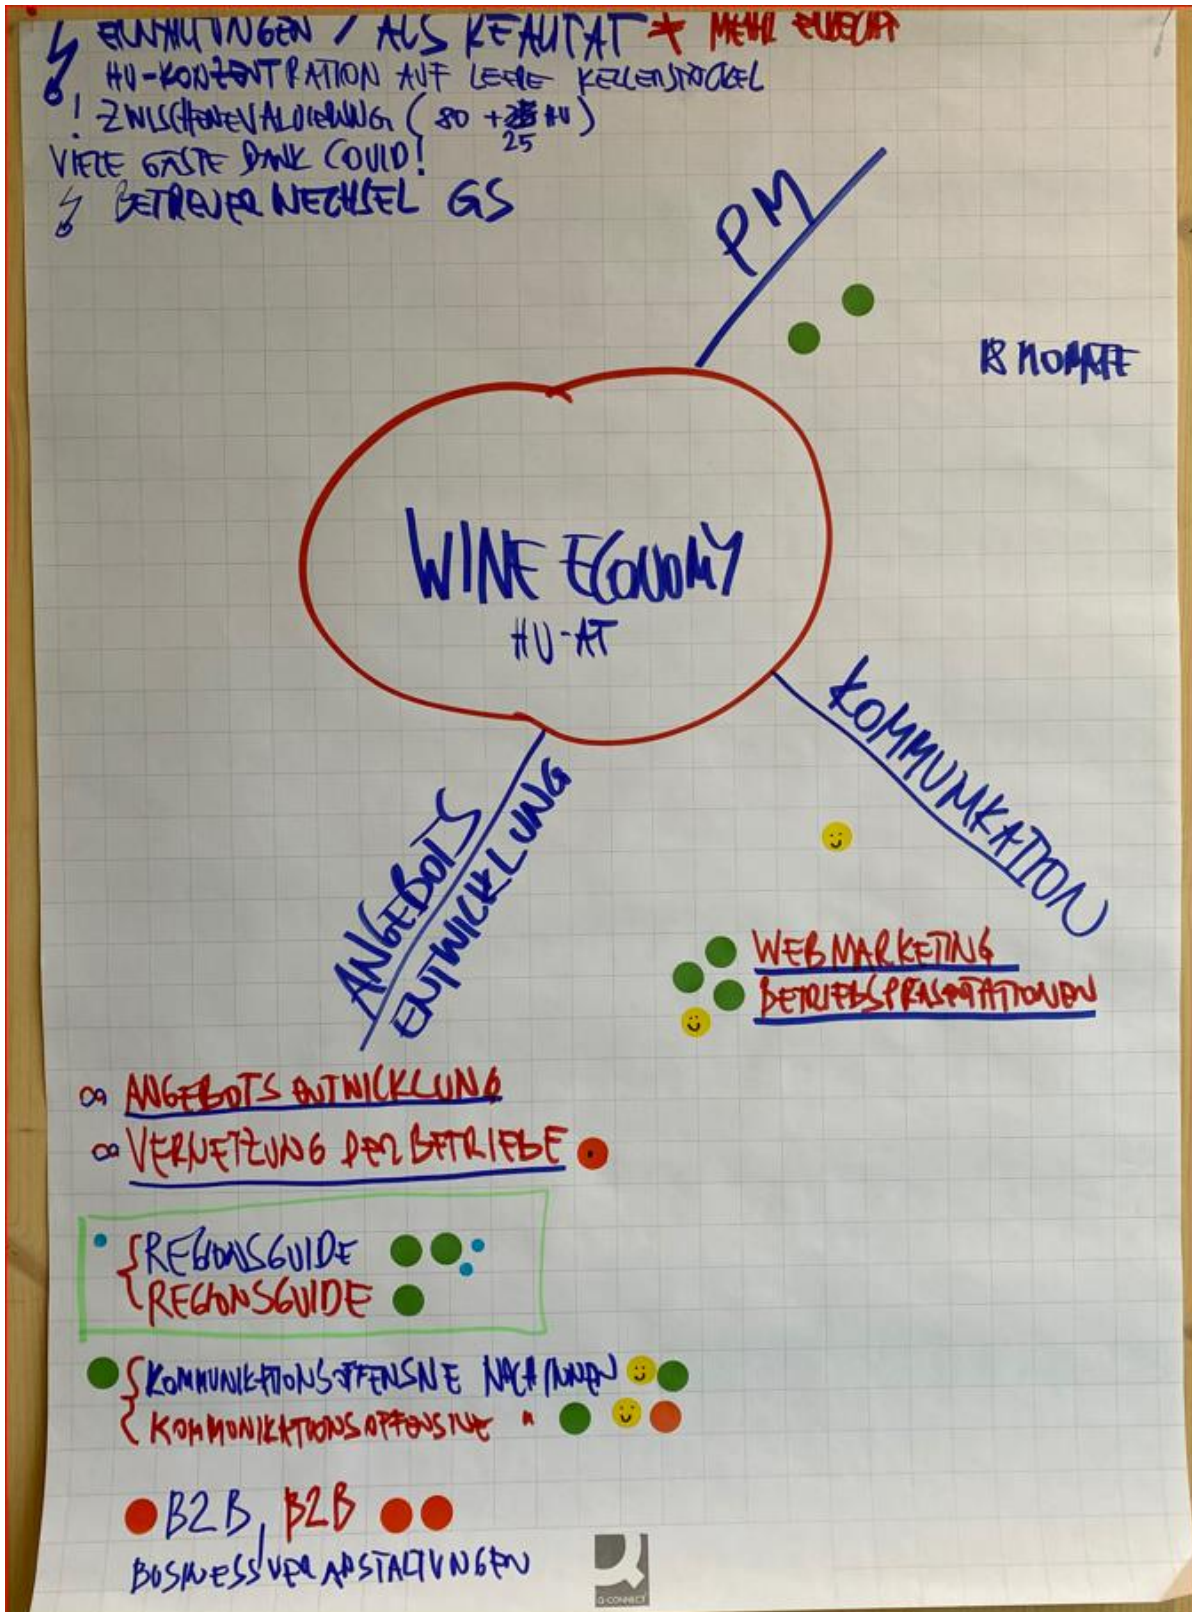 ALS REALITÄT * MEHR
HU-KONZENTRATION AUF LEERE KELLERSTÖCKEL
! ZWISCHENEVALUIERUNG (80 + 25 HU)
VIELE GÄSTE DANK COVID!
BETREUERWECHSEL GS
PM
18 MONATE
WINE ECONOMY
HU-AT
KOMMUNIKATION
ANGEBOTS
ENTWICKLUNG
WEBMARKETING
BETRIEBSPRÄSENTATIONEN
∞ ANGEBOTSENTWICKLUNG
∞ VERNETZUNG DER BETRIEBE
REGIONSGUIDE
REGIONSGUIDE
KOMMUNIKATIONSOFFENSIVE NACH INNEN
KOMMUNIKATIONSOFFENSIVE "
B2B, B2B
BUSINESSVERANSTALTUNGEN
Q-CONNECT